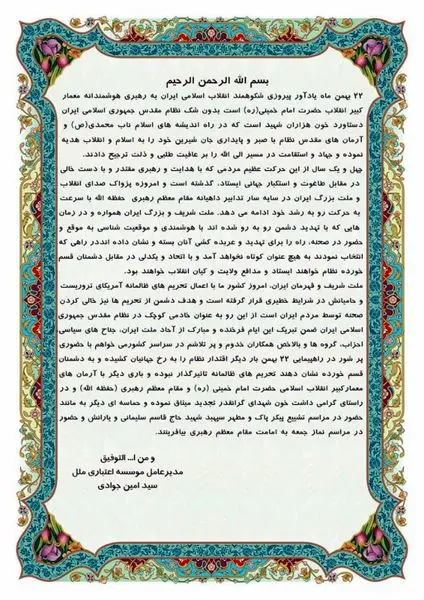 بسم الله الرحمن الرحیم
۲۲ بهمن ماه یادآور پیروزی شکوهمند انقلاب اسلامی ایران به رهبری هوشمندانه معمار
کبیر انقلاب حضرت امام خمینی(ره) است بدون شک نظام مقدس جمهوری اسلامی ایران
دستاورد خون هزاران شهید است که در راه اندیشه های اسلام ناب محمدی(ص) و
آرمان های مقدس نظام با صبر و پایداری جان شیرین خود را به اسلام و انقلاب هدیه
نموده و جهاد و استقامت در مسیر الی الله را بر عافیت طلبی و ذلت ترجیح دادند.
چهل و یک سال از این حرکت عظیم مردمی که با هدایت و رهبری مقتدر و با دست خالی
در مقابل طاغوت و استکبار جهانی ایستاد، گذشته است و امروزه پژواک صدای انقلاب
و ملت بزرگ ایران در سایه سار تدابیر داهیانه مقام معظم رهبری حفظه الله با سرعت
به حرکت رو به رشد خود ادامه می دهد. ملت شریف و بزرگ ایران همواره و در زمان
هایی که با تهدید دشمن رو به رو شده اند با هوشمندی و موقعیت شناسی به موقع و
حضور در صحنه، راه را برای تهدید و عربده کشی آنان بسته و نشان داده اند در راهی که
انتخاب نمودند به هیچ عنوان کوتاه نخواهد آمد و با اتحاد و یکدلی در مقابل دشمنان قسم
خورده نظام خواهند ایستاد و مدافع ولایت و کیان انقلاب خواهند بود.
ملت شریف و قهرمان ایران، امروز کشور ما با اعمال تحریم های ظالمانه آمریکای تروریست
و حامیانش در شرایط خطیری قرار گرفته است و هدف دشمن از تحریم ها نیز خالی کردن
صحنه توسط مردم ایران است از این رو به عنوان خادمی کوچک در نظام مقدس جمهوری
اسلامی ایران ضمن تبریک این ایام فرخنده و مبارک از آحاد ملت ایران، جناح های سیاسی
احزاب، گروه ها و بالاخص همکاران خدوم و پر تلاشم در سراسر کشورمی خواهم با حضوری
پر شور در راهپیمایی ۲۲ بهمن بار دیگر اقتدار نظام را به رخ جهانیان کشیده و به دشمنان
قسم خورده نشان دهند تحریم های ظالمانه تاثیرگذار نبوده و باری دیگر با آرمان های
معمارکبیر انقلاب اسلامی حضرت امام خمینی (ره) و مقام معظم رهبری (حفظه الله) و در
راستای گرامی داشت خون شهدای گرانقدر تجدید میثاق نموده و حماسه ای دیگر به مانند
حضور در مراسم تشییع پیکر پاک و مطهر سپهبد شهید حاج قاسم سلیمانی و یارانش و حضور
در مراسم نماز جمعه به امامت مقام معظم رهبری بیافرینند.
و من ا... التوفیق
مدیرعامل موسسه اعتباری ملل
سید امین جوادی